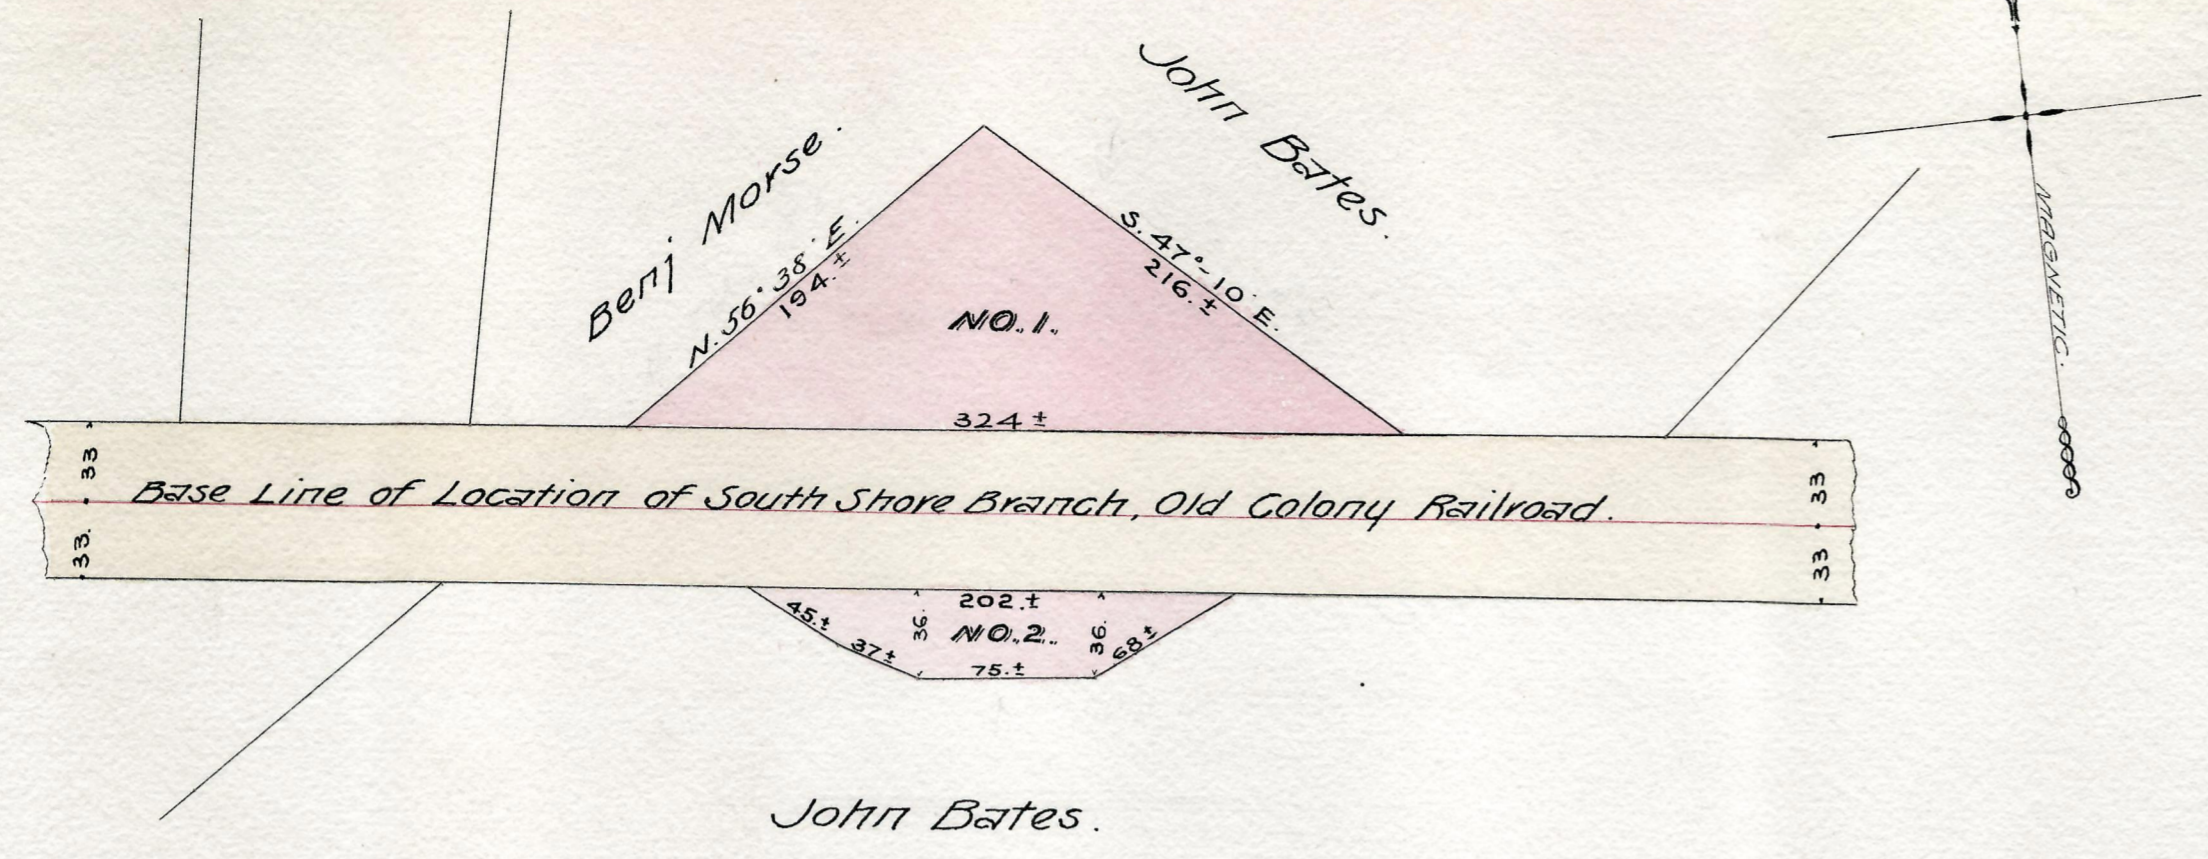 John Bates.
Benj Morse.
N. 56° 38' E.
194. ±
S. 47°-10' E.
216. ±
NO. 1.
324 ±
MAGNETIC.
33
33.
Base Line of Location of South Shore Branch, Old Colony Railroad.
33
33
202. ±
45. ±
37 ±
36.
NO. 2.
36.
68 ±
75. ±
John Bates.